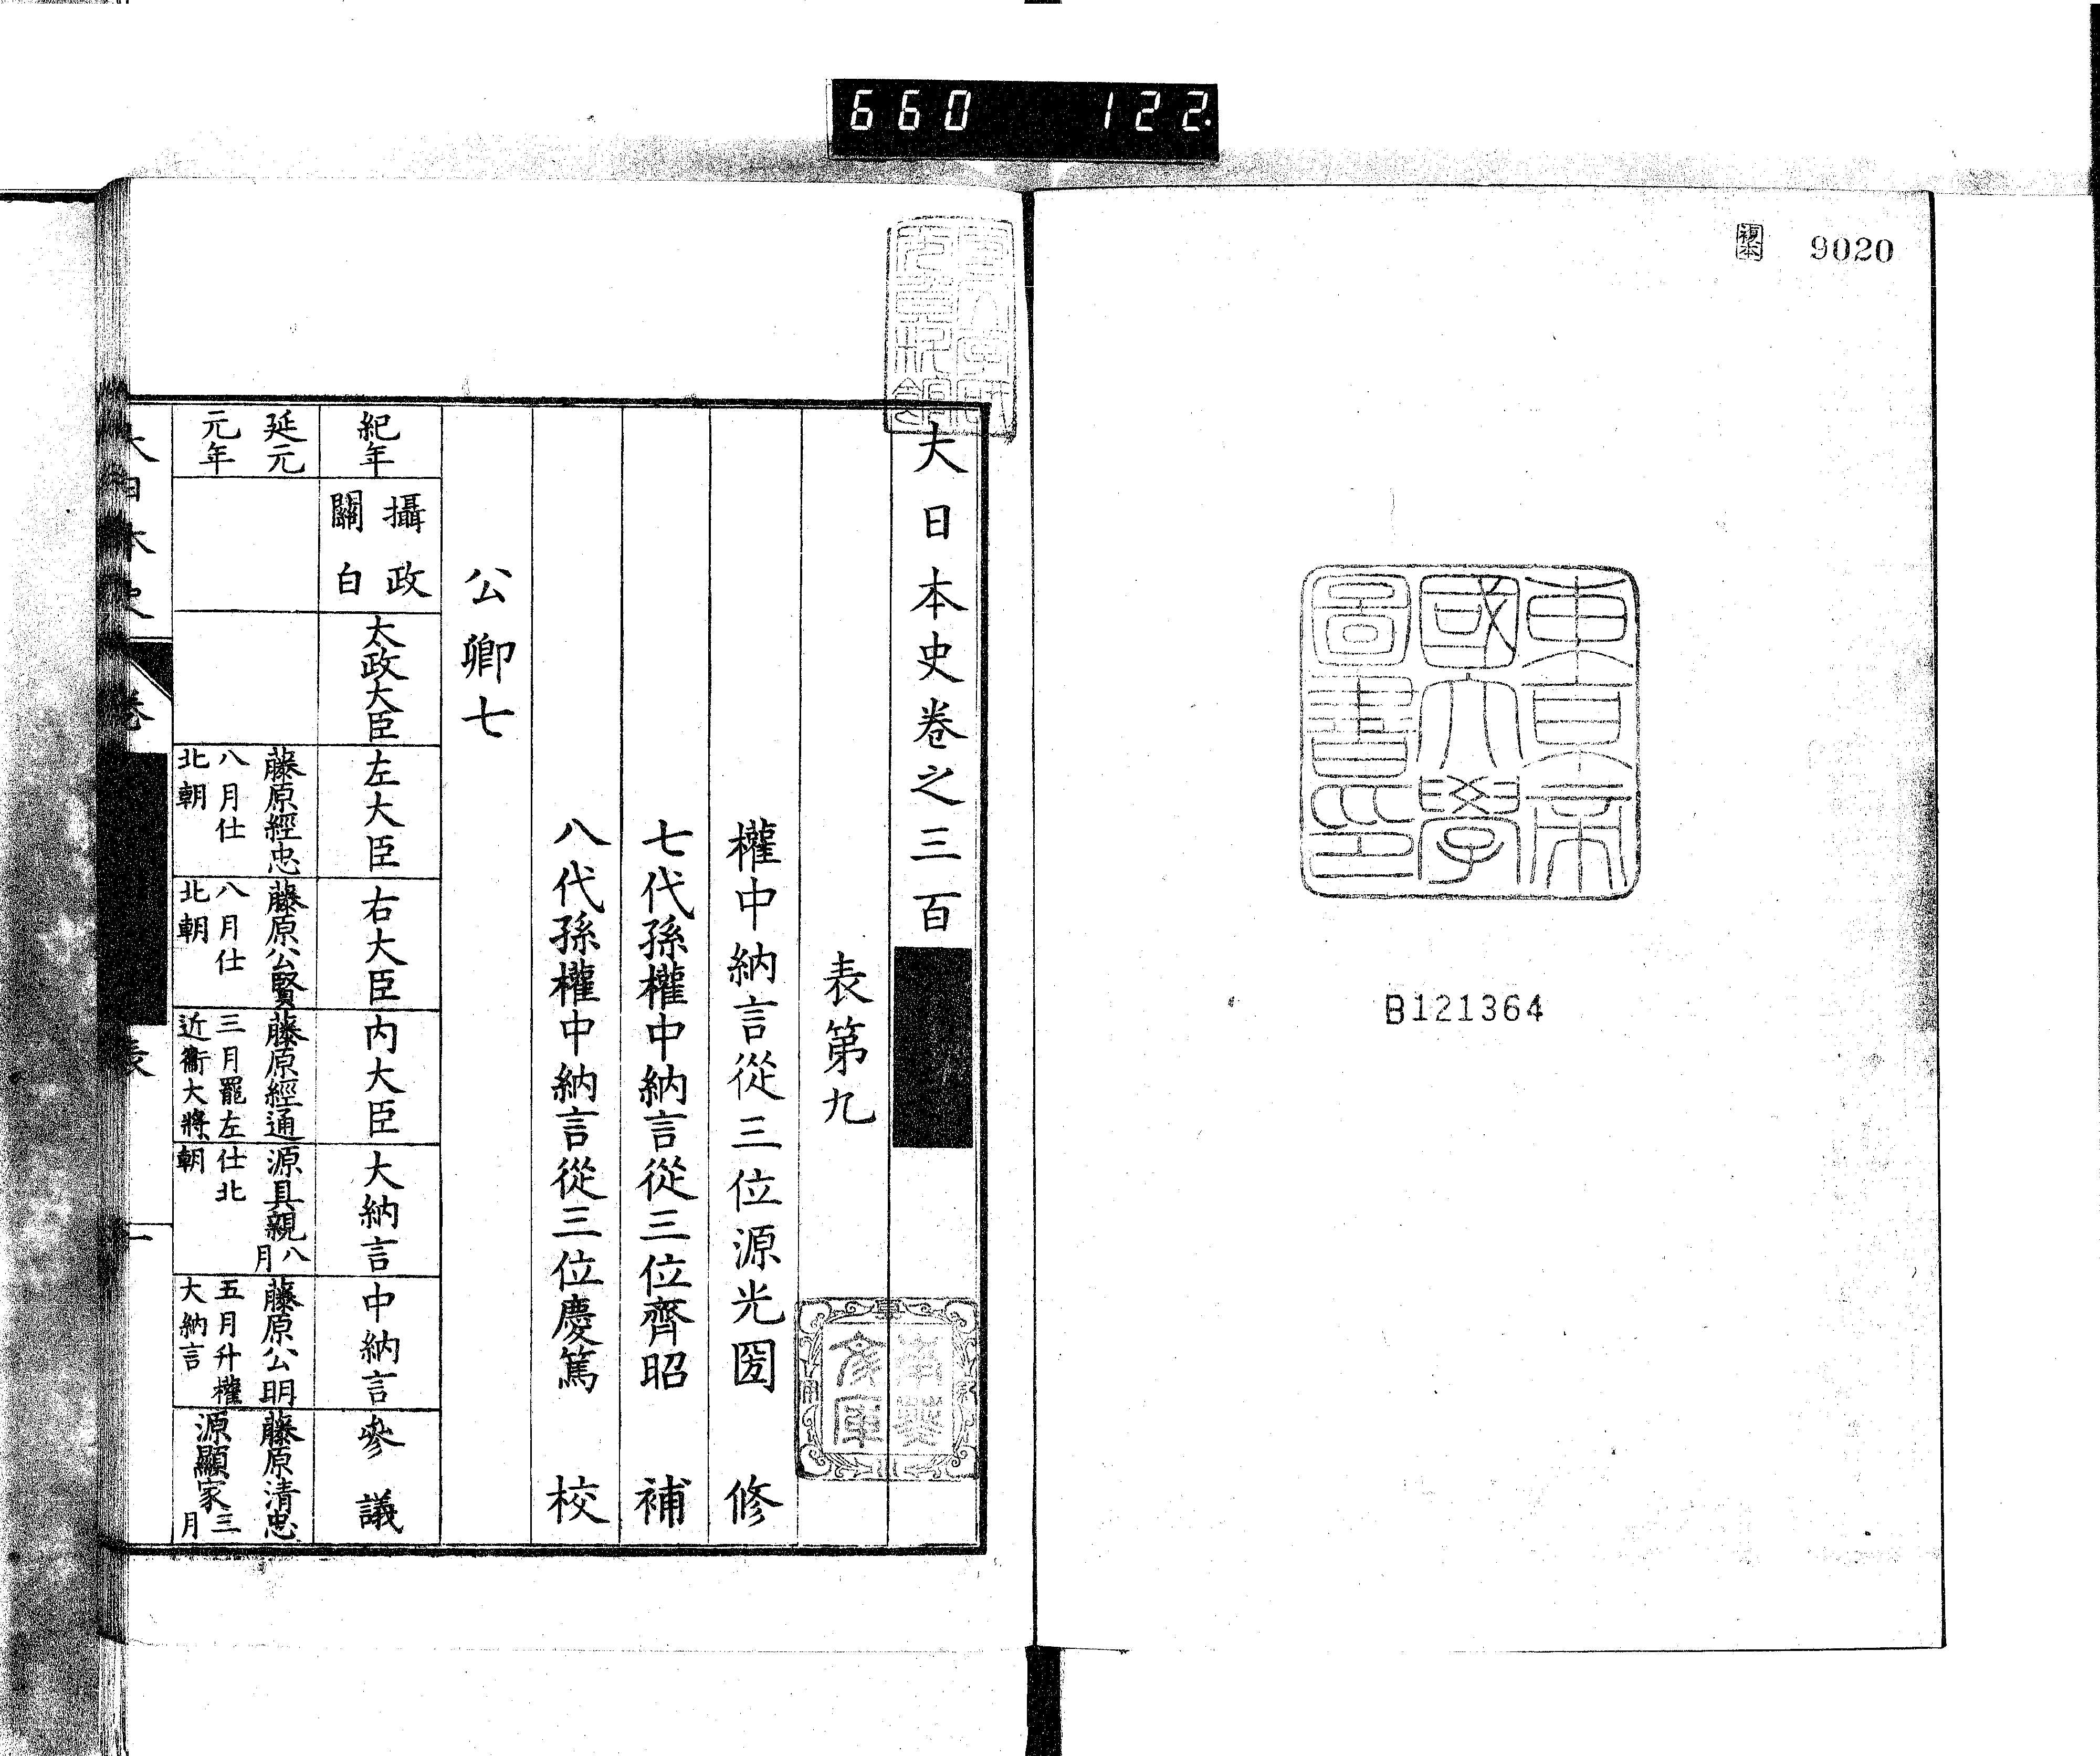 660 122.
複本
9020
東京帝
國大學
圖書印
B121364
大日本史卷之三百
表第九
權中納言從三位源光圀 修
七代孫權中納言從三位齊昭 補
八代孫權中納言從三位慶篤 校
公卿七
紀年
攝政
關白
太政大臣
左大臣
右大臣
内大臣
大納言
中納言
參議
延元
元年
藤原經忠
八月仕
北朝
藤原公賢
八月仕
北朝
藤原經通
三月罷左
近衞大將
源具親八
月
仕北
朝
藤原公明
五月升權
大納言
藤原清忠
源顯家三
月
大日本史
卷
表
一
南葵
文庫